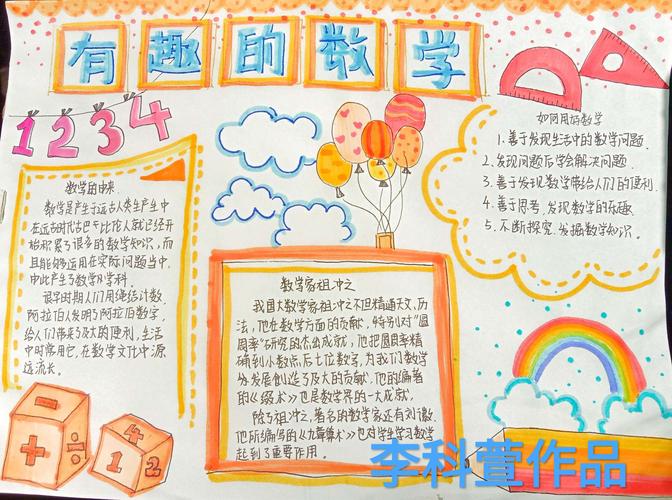 有趣的数学
1 2 3 4
数学的由来
数学是产生于远古人类生产中
在远古时代古巴干比伦人就已经开
始积累了很多的数学知识，而
且能够运用在实际问题当中，
由此产生了数学的学科。
很早时期人们用绳结计数，
阿拉伯人发明了阿拉伯数字，
给人们带来了及大的便利，生活
中时常用它，在数学文化中源
远流长。
如何用好数学
1.善于发现生活中的数学问题.
2.发现问题后学会解决问题.
3.善于发现数学带给人们的便利.
4.善于思考，发现数学的乐趣.
5.不断探究，发掘数学知识。
数学家祖冲之
我国大数学家祖冲之不但精通天文，历
法，他在数学方面的贡献，特别对“圆
周率”研究的杰出成就，他把圆周率精
确到小数点后七位数字，为我们数学
发展创造了及大的贡献，他的编著
的《缀术》也是数学界的一大成就，
除了祖冲之，著名的数学家还有刘徽，
他所编写的《九算术》也对学生学习数学
起到了重要作用。
− + ÷
4 1 2
李科萱作品